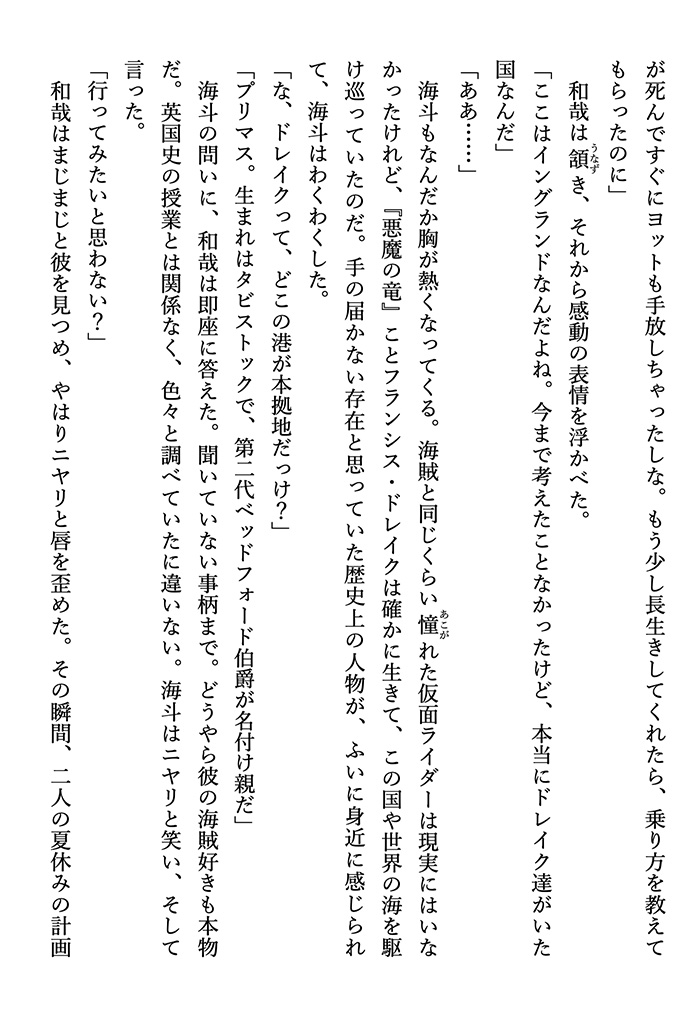 が死んですぐにヨットも手放しちゃったしな。もう少し長生きしてくれたら、乗り方を教えて
もらったのに」
　和哉は頷き、それから感動の表情を浮かべた。
「ここはイングランドなんだよね。今まで考えたことなかったけど、本当にドレイク達がいた
国なんだ」
「ああ……」
　海斗もなんだか胸が熱くなってくる。海賊と同じくらい憧れた仮面ライダーは現実にはいな
かったけれど、『悪魔の竜』ことフランシス・ドレイクは確かに生きて、この国や世界の海を駆
け巡っていたのだ。手の届かない存在と思っていた歴史上の人物が、ふいに身近に感じられ
て、海斗はわくわくした。
「な、ドレイクって、どこの港が本拠地だっけ？」
「プリマス。生まれはタビストックで、第二代ベッドフォード伯爵が名付け親だ」
　海斗の問いに、和哉は即座に答えた。聞いていない事柄まで。どうやら彼の海賊好きも本物
だ。英国史の授業とは関係なく、色々と調べていたに違いない。海斗はニヤリと笑い、そして
言った。
「行ってみたいと思わない？」
　和哉はまじまじと彼を見つめ、やはりニヤリと唇を歪めた。その瞬間、二人の夏休みの計画